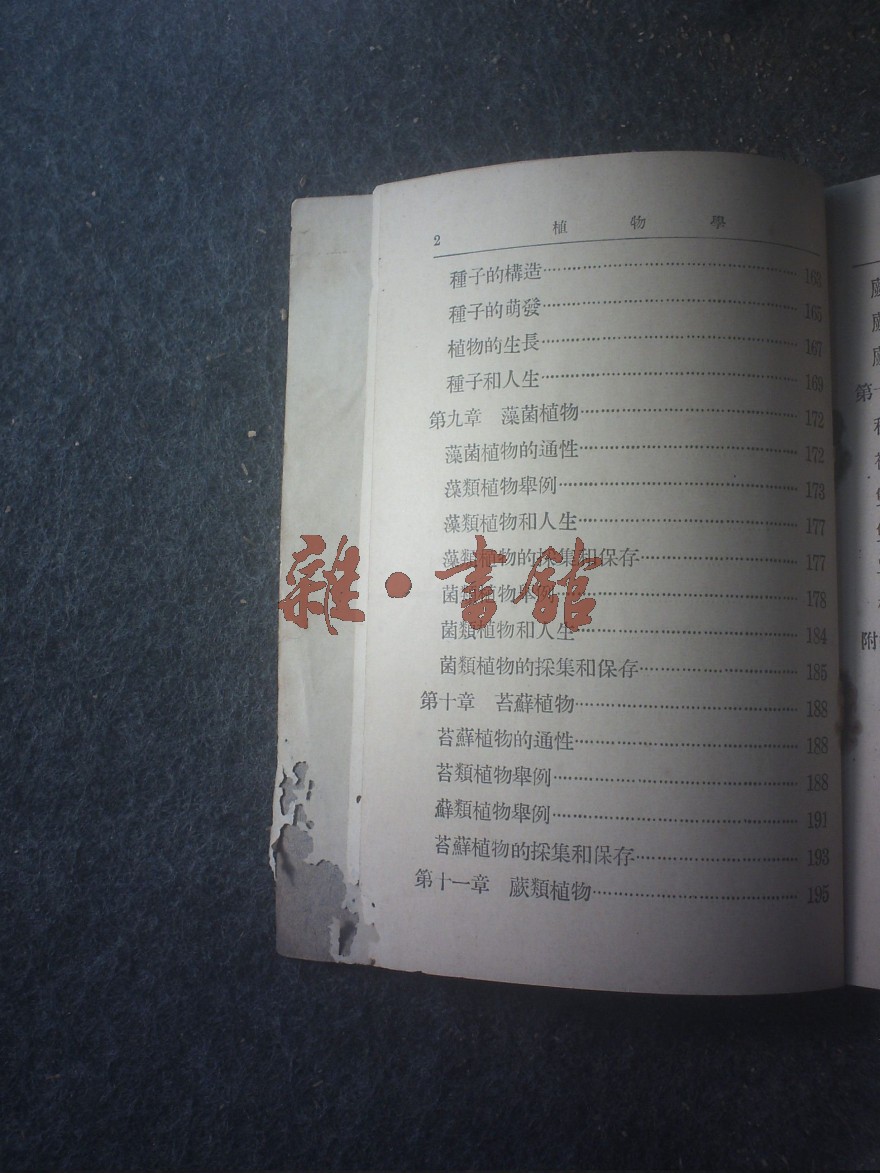 2 植物學
種子的構造 163
種子的萌發 165
植物的生長 167
種子和人生 169
第九章 藻菌植物 172
藻菌植物的通性 172
藻類植物舉例 173
藻類植物和人生 177
藻類植物的採集和保存 177
菌類植物舉例 178
菌類植物和人生 184
菌類植物的採集和保存 185
第十章 苔蘚植物 188
苔蘚植物的通性 188
苔類植物舉例 188
蘚類植物舉例 191
苔蘚植物的採集和保存 193
第十一章 蕨類植物 195
雜·書館
第
附